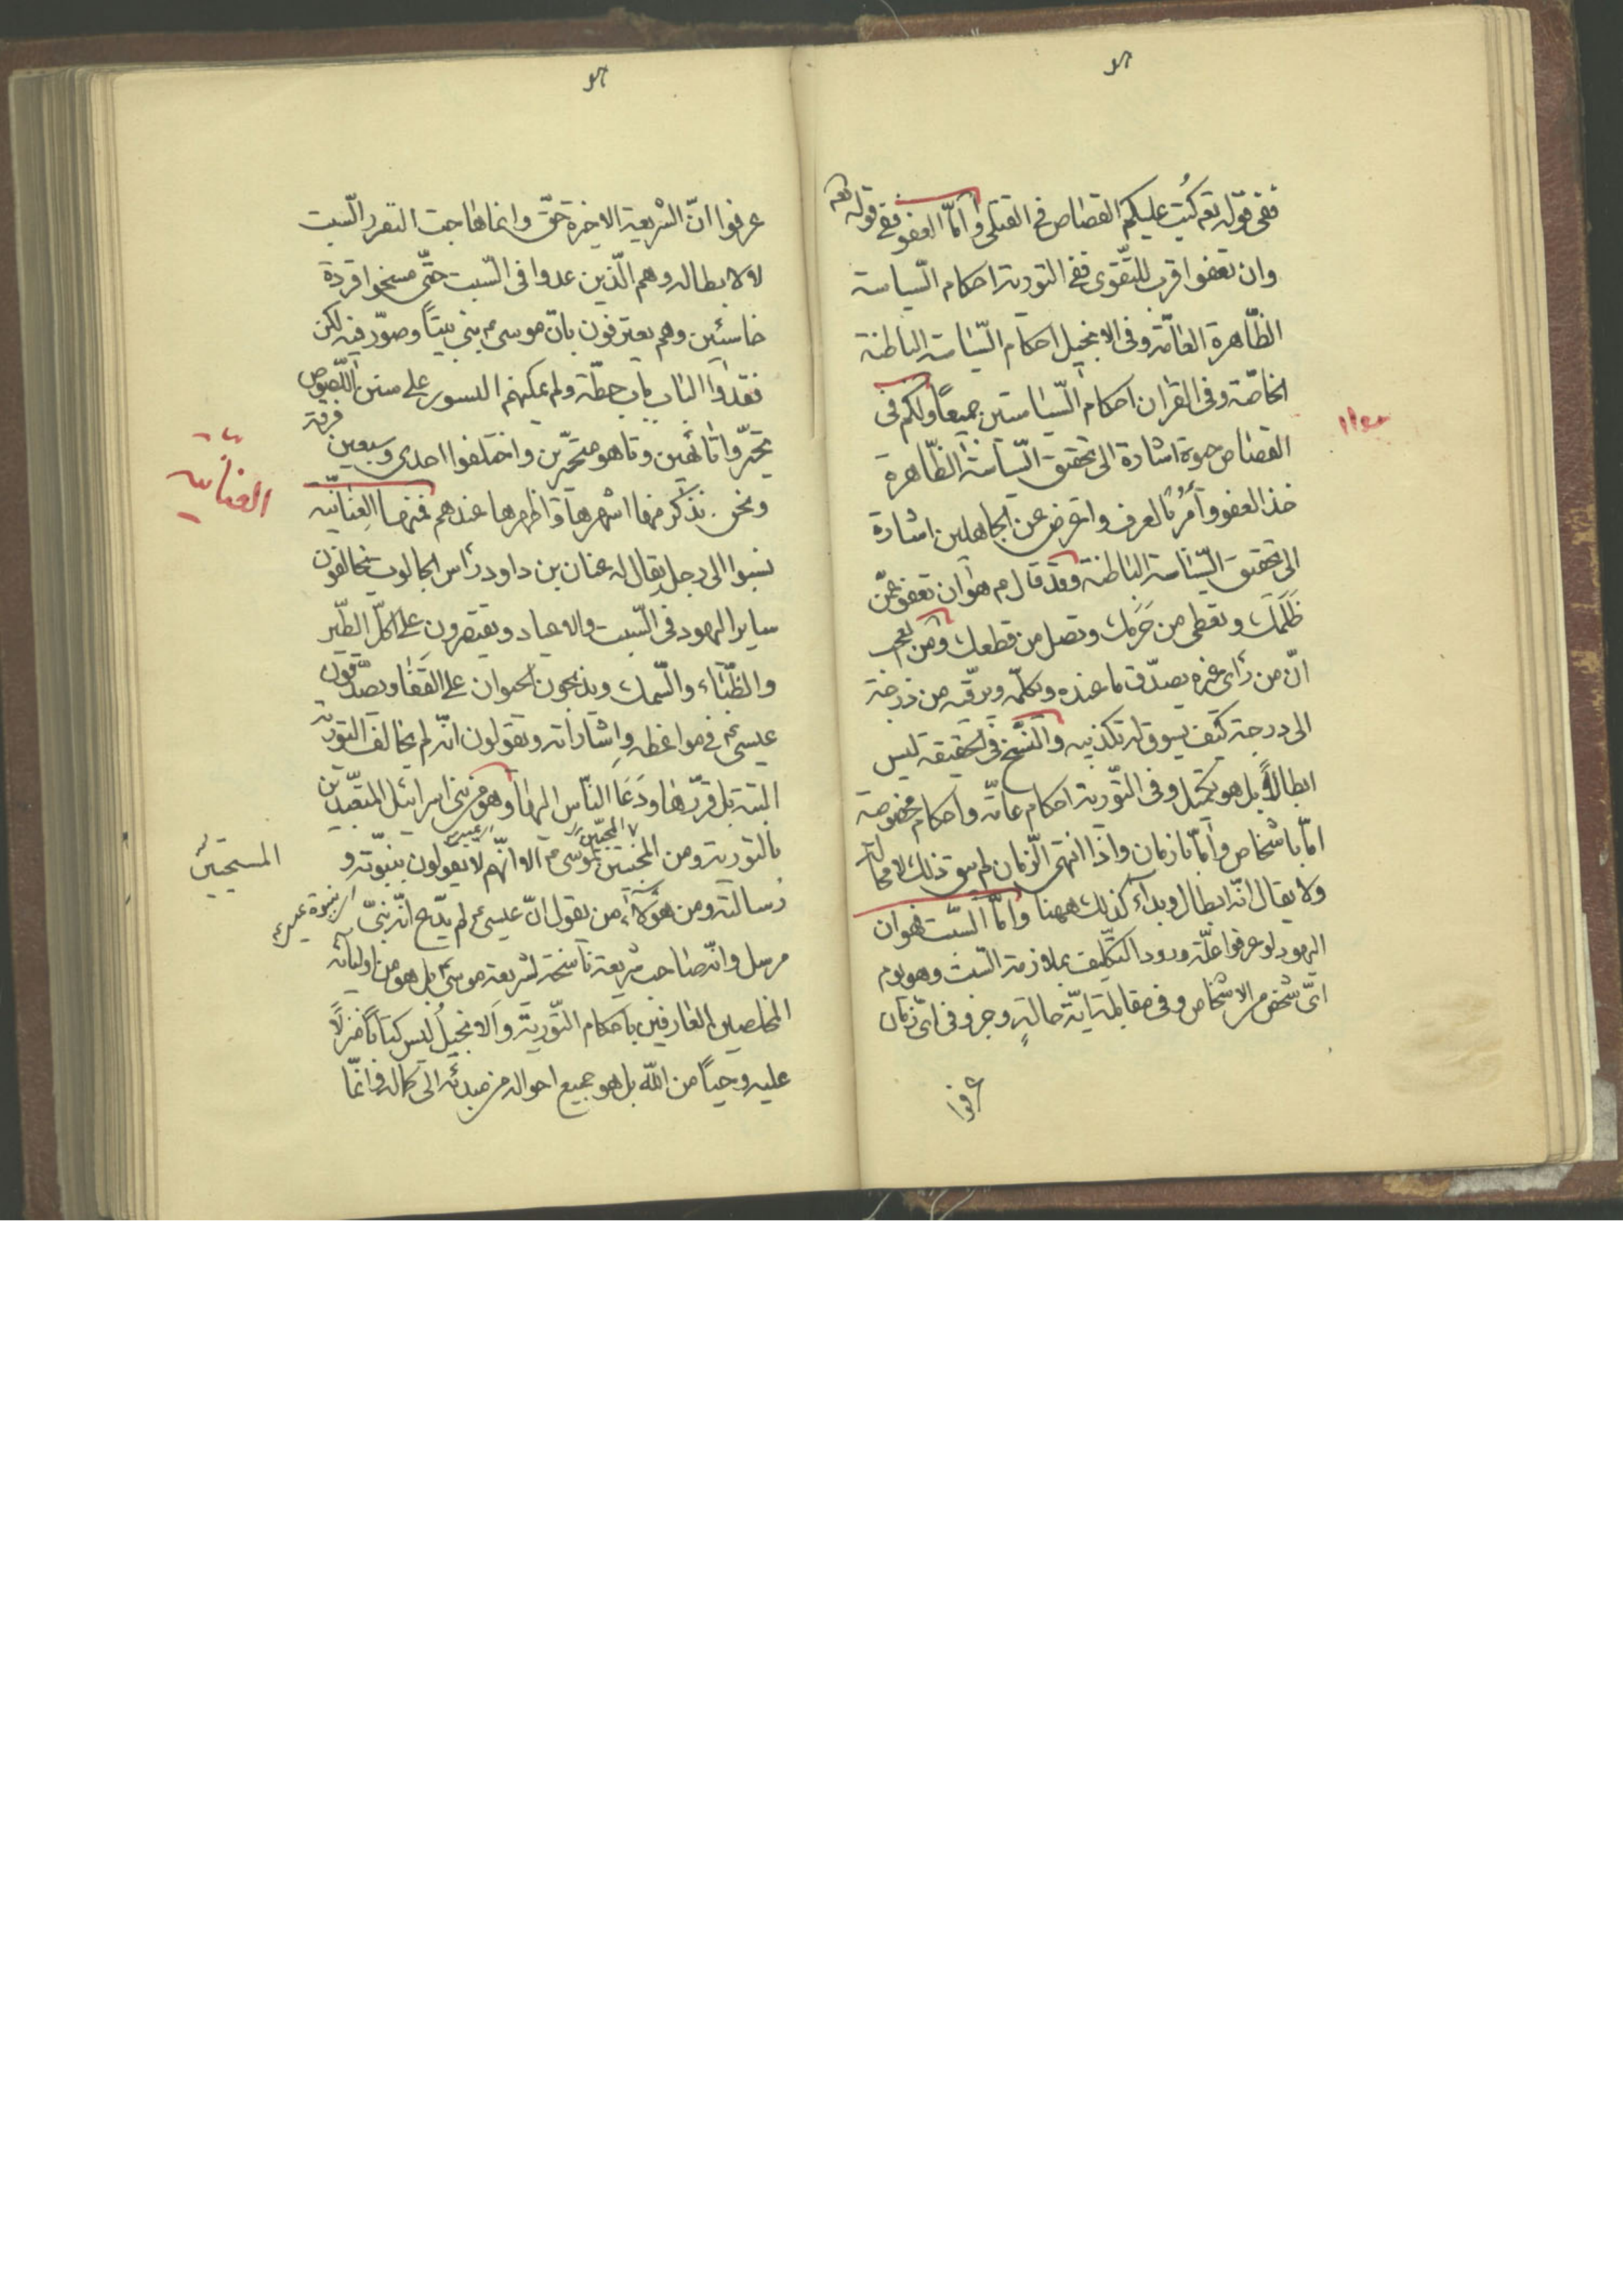 ففى قوله تعه كُتِبَ عليكم القصاص فى القتلى وامّا العفو ففى قوله تعه
وان تعفوا اقرب للتّقوى ففى التورية احكام السّياسة
الظّاهرة العامّة وفى الانجيل احكام السّياسة الباطنة
الخاصّة وفى القران احكام السّياستين جميعًا ولكم فى
القصاص حيوة اشارة الى تحقيق السّياسة الظّاهرة
خذ العفو وأمُر بالعرف واعرض عن الجاهلين اشارة
الى تحقيق السّياسة الباطنة وقد قال عم هو ان تعفو عمّن
ظَلَمَك وتعطى من حَرَمَك وتصل من قطعك ومن العجب
انّ من رأى غيره يصدّق ما عنده ويكلّمه ويرقّيه من درجة
الى درجة كيف يسوق له تكذيبه والنّسخ فى الحقيقة ليس
ابطالاً بل هو تكميل وفى التّورية احكام عامّة واحكام مخصوصة
امّا باشخاص وامّا بازمان واذا انتهى الزّمان لم يبق ذلك لا محالة
ولا يقال انّه ابطال وبداء كذلك ههنا وامّا السّبت فهو ان
اليهود لو عرفوا علّة ورود التكليف بملازمة السّبت وهو يوم
اىّ شخص من الاشخاص وفى مقابلة ايّة حالةٍ وجزو فى اىّ زمان
عرفوا
عرفوا انّ الشّريعة الاخيرة حقّ وانما هاجت التقرر السّبت
لا لابطاله وهم الّذين عدوا فى السّبت حتّى مسخوا قردة
خاسئين وهم يعترفون بانّ موسى عم بنى بيتاً وصوّر فيه
فقدوا الباب باب حطّة ولم يمكنهم التسور على سنن اللّصوص
تحيّروا تائهين وتاهو متحيّرين واختلفوا احدى وسبعين فرقة
ونحن نذكر منها اشهرها واظهرها عندهم فمنهم العنانيّة
العنانيّة
نسبوا الى رجل يقال له عنان بن داود رأس الجالوت يخالفون
ساير اليهود فى السّبت والاعياد ويقتصرون على اكل الطّير
والظّباء والسّمك ويذبحون الحيوان على القفا ويصدّقون
عيسى عم فى مواعظه واشاراته ويقولون انّه لم يخالف التورية
البتة بل قرّرها ودَعَا النّاس اليها وهو من بنى اسرائيل المتعبّدين
بالتورية ومن المجيبين لموسى عم الا انّهم لا يقولون بنبوّته و
رسالته ومن هؤلاء من يقول انّ عيسى عم لم يدّع انّه نبىّ
مرسل وانّه صاحب شريعة ناسخة لشريعة موسى عم بل هو من اوليائه
المخلصين العارفين باحكام التّورية والانجيل ليس كتاباً منزلاً
عليه وحياً من اللّه بل هو جميع احواله من مبدئه الى كماله وانّما